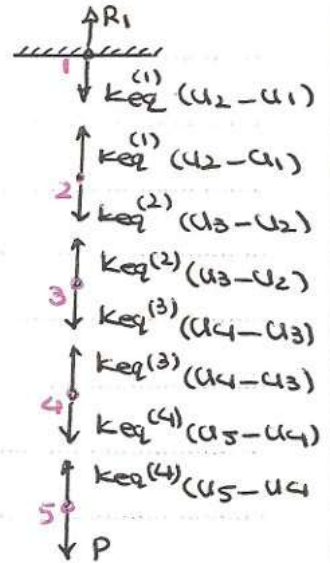 R₁
1
keq⁽¹⁾ (u₂ − u₁)
keq⁽¹⁾ (u₂ − u₁)
2
keq⁽²⁾ (u₃ − u₂)
keq⁽²⁾ (u₃ − u₂)
3
keq⁽³⁾ (u₄ − u₃)
keq⁽³⁾ (u₄ − u₃)
4
keq⁽⁴⁾ (u₅ − u₄)
keq⁽⁴⁾ (u₅ − u₄
5
P